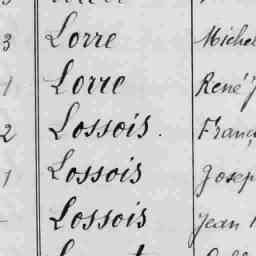 3 Lorre Michel
1 Lorre René
2 Lossois. Franç
1 Lossois Josep
- Lossois Jean